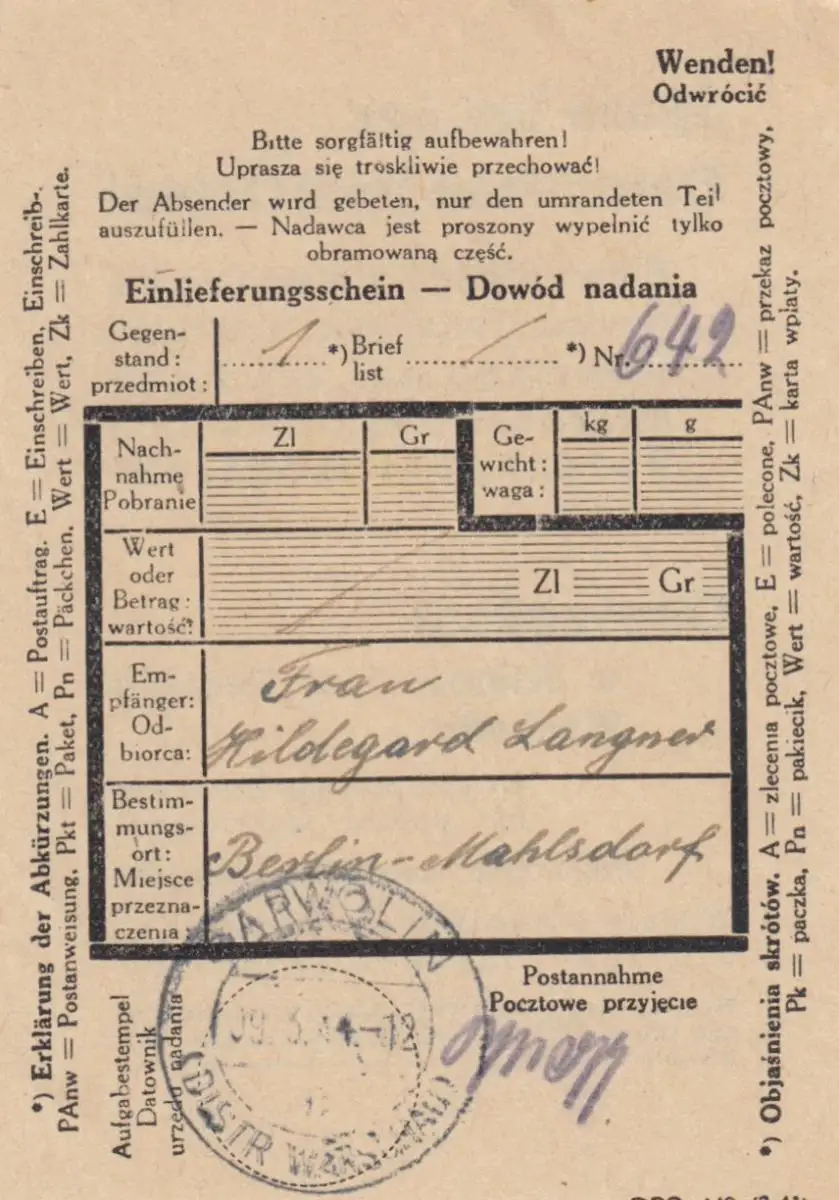 Wenden!
Odwrócić
Bitte sorgfältig aufbewahren!
Uprasza się troskliwie przechować!
Der Absender wird gebeten, nur den umrandeten Teil
auszufüllen. — Nadawca jest proszony wypełnić tylko
obramowaną część.
Einlieferungsschein — Dowód nadania
Gegen-
stand:
przedmiot:
1 *) Brief
list
*) Nr. 642
Nach-
nahme
Pobranie
Zl Gr
Ge-
wicht:
waga:
kg g
Wert
oder
Betrag:
wartość:
Zl Gr
Em-
pfänger:
Od-
biorca:
Frau
Hildegard Langner
Bestim-
mungs-
ort:
Miejsce
przezna-
czenia:
Berlin-Mahlsdorf
GARWOLIN
09.3.44-18
(DISTR WARSCHAU)
Aufgabestempel
Datownik
urzędu nadania
Postannahme
Pocztowe przyjęcie
*) Erklärung der Abkürzungen. A = Postauftrag. E = Einschreiben, Einschreib-.
PAnw = Postanweisung, Pkt = Paket, Pn = Päckchen. Wert = Wert, Zk = Zahlkarte.
*) Objaśnienia skrótów. A = zlecenia pocztowe, E = polecone, PAnw = przekaz pocztowy,
Pk = paczka, Pn = pakiecik, Wert = wartość, Zk = karta wpłaty.